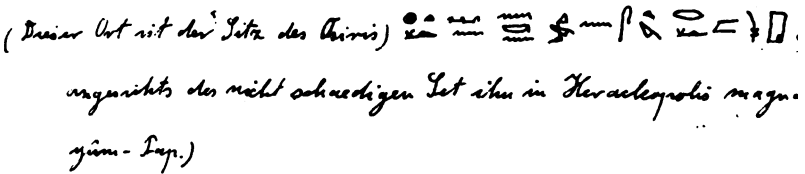 (Dieser Ort ist der Sitz des Osiris)
angesichts des nicht schaedigen Set ihn in Heracleopolis magna
yûm-Pap.)